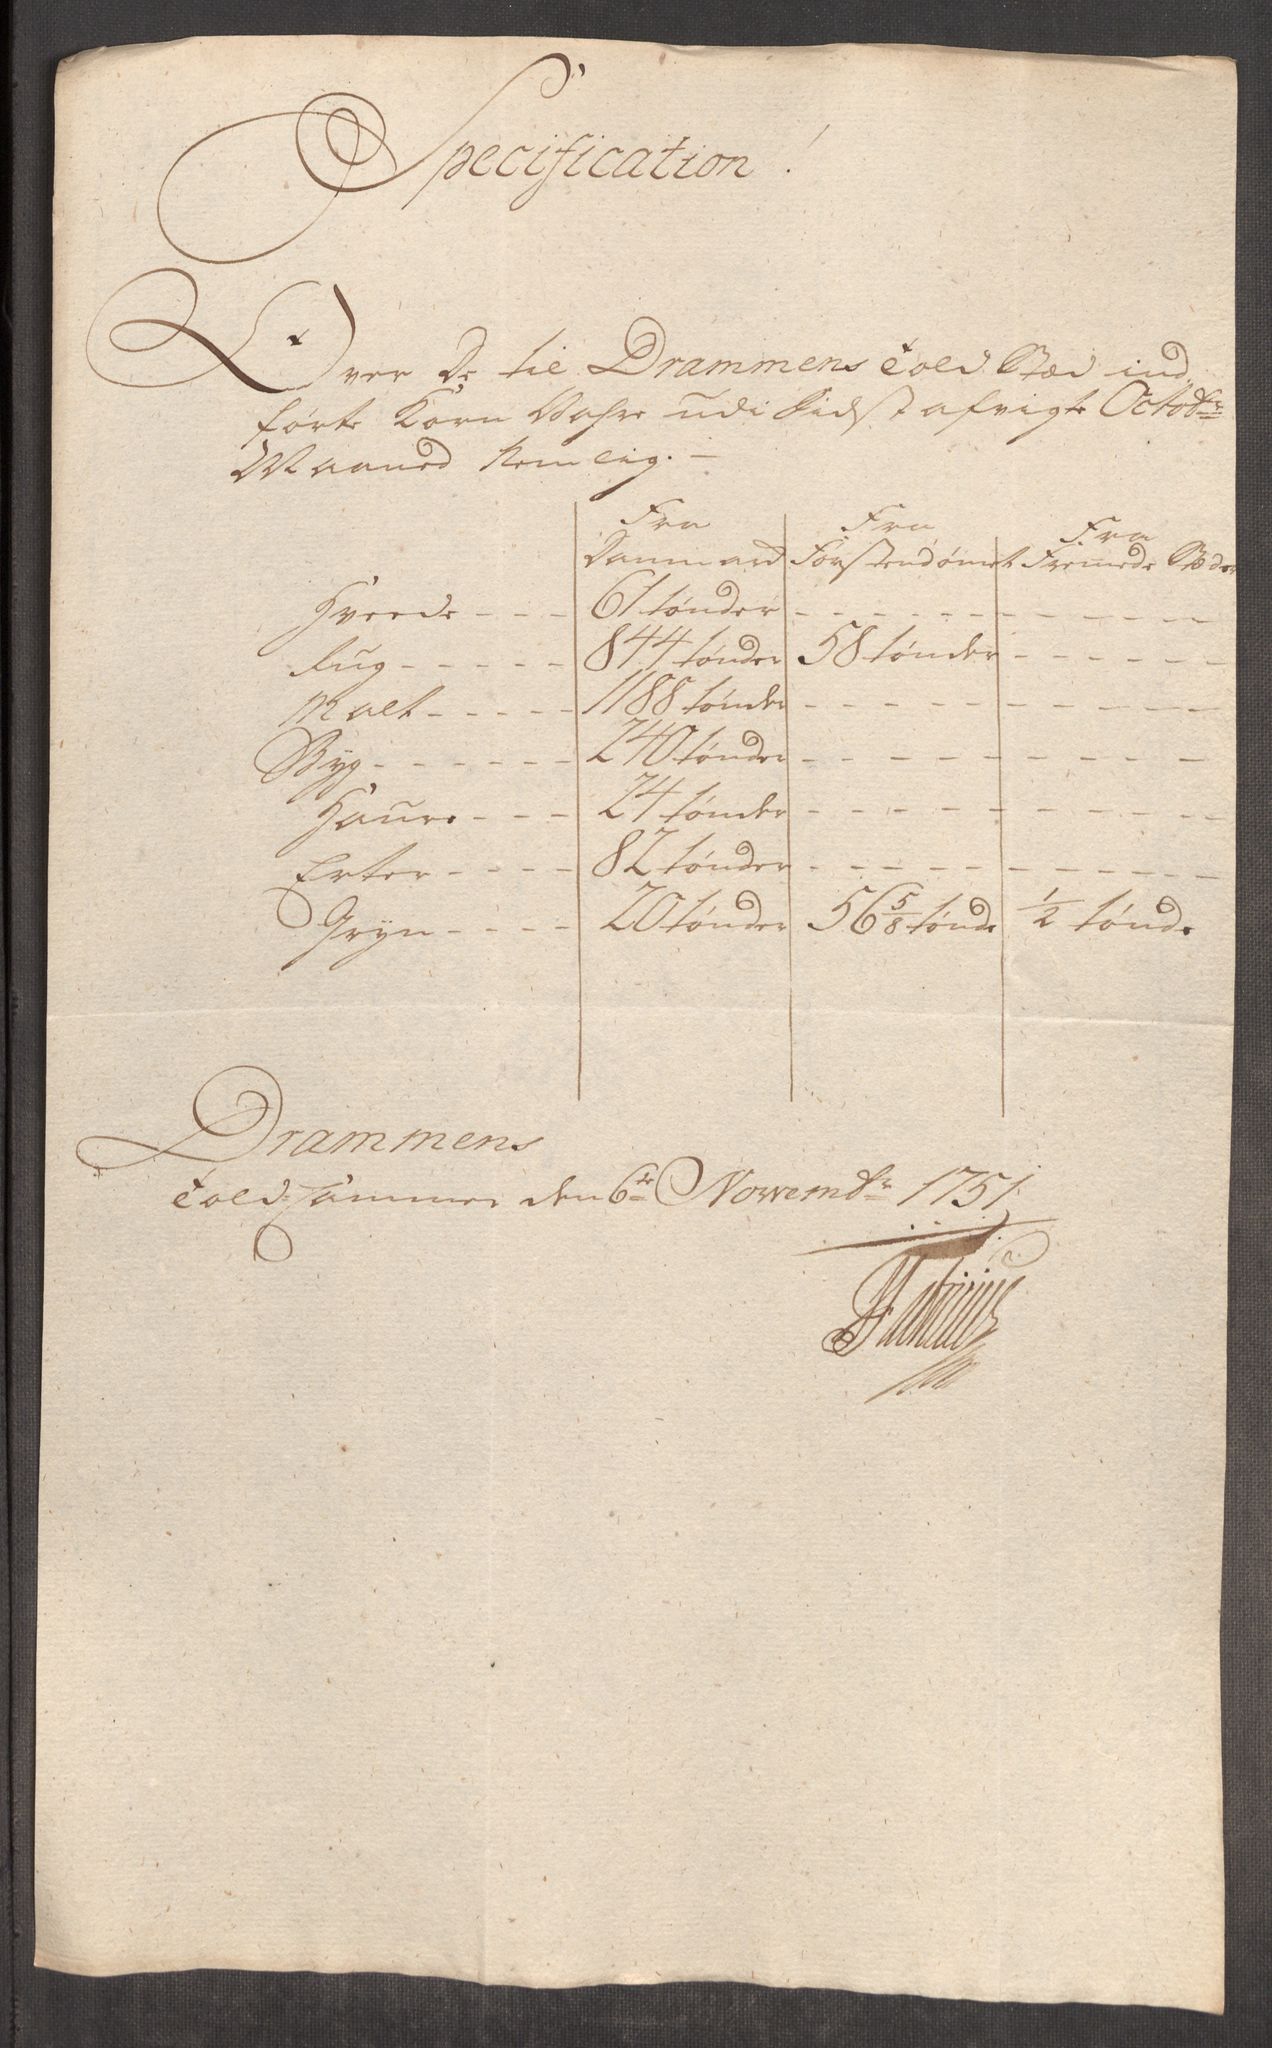 Specification!
Over De til Drammens Told Stæd ind
førte Korn Vahre udi Sidst afvigte Octobr
Maaned Nemlig. –
Fra Danmarck | Fra Førstendømet | Fra Fremede Stæder
Hvede - - - | 61 tønder | - - - - - | - - - - -
Rug - - - - - | 844 tønder | 58 tønder | - - - - -
Malt - - - - | 1188 tønder | - - - - - | - - - - -
Byg - - - - - - | 240 tønder | - - - - - | - - - - -
Haure - - - | 24 tønder | - - - - - | - - - - -
Erter - - - - | 82 tønder | - - - - - | - - - - -
Gryn - - - - | 20 tønder | 56 5/8 tønde | 1/2 tønde
Drammens
Told-Cammer den 6te Novembr 1751